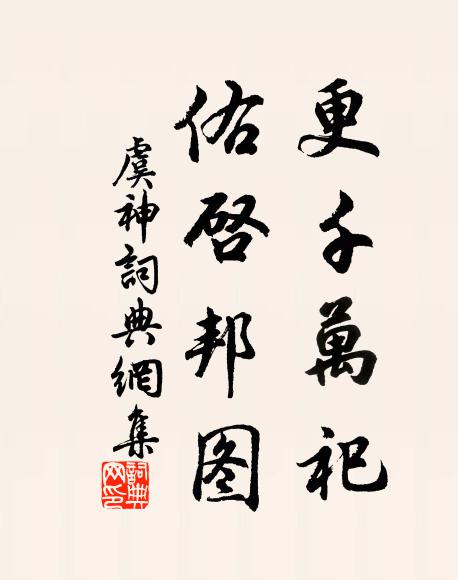 更千萬祀
佑啓邦图
虞神詞典網集
詞典网印